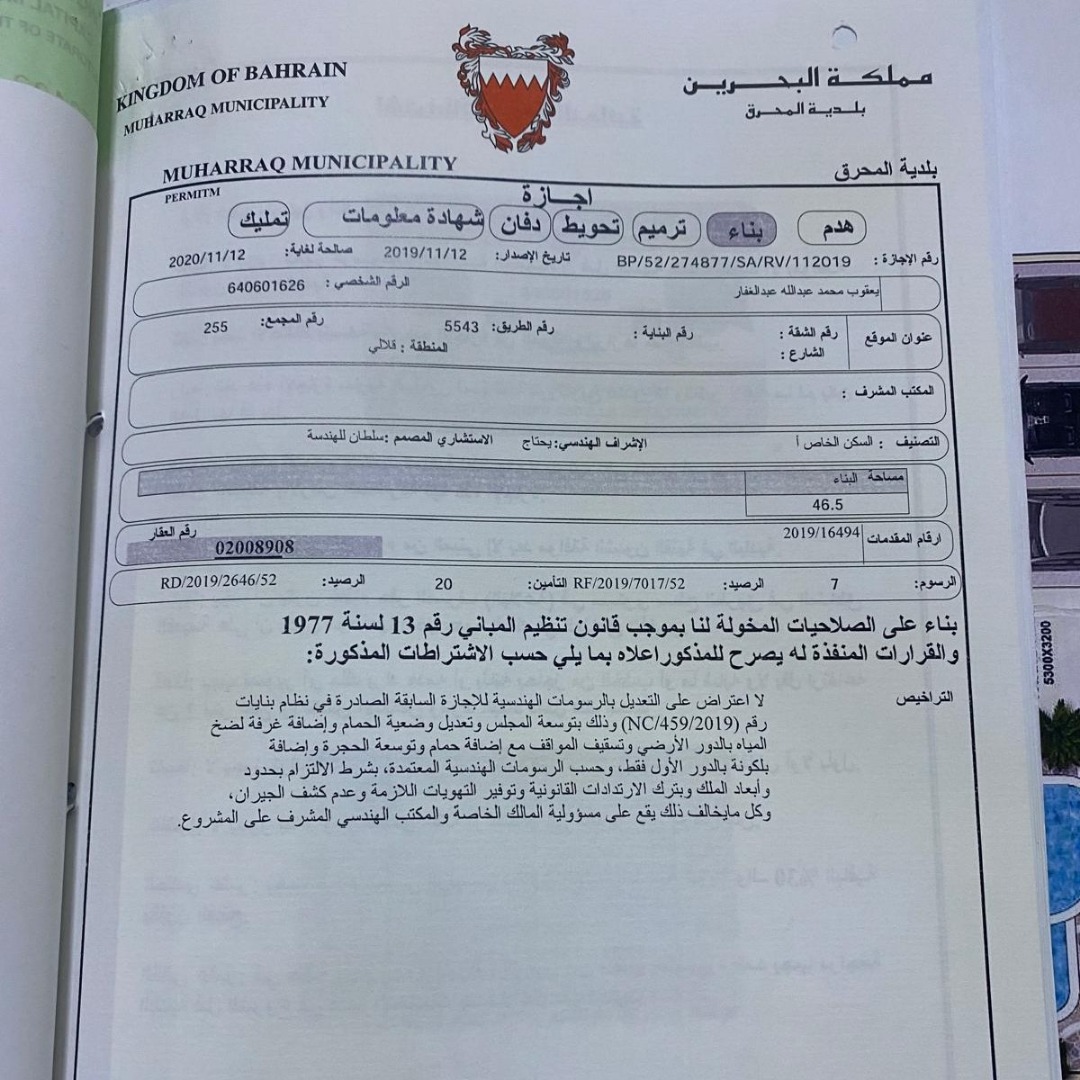 KINGDOM OF BAHRAIN
مملكة البحرين
MUHARRAQ MUNICIPALITY
بلدية المحرق
MUHARRAQ MUNICIPALITY
بلدية المحرق
PERMITM
اجازة
هدم بناء ترميم تحويط دفان شهادة معلومات تمليك
رقم الإجازة : BP/52/274877/SA/RV/112019 تاريخ الإصدار: 2019/11/12 صالحة لغاية: 2020/11/12
يعقوب محمد عبدالله عبدالغفار الرقم الشخصي : 640601626
عنوان الموقع رقم الشقة : رقم البناية : رقم الطريق: 5543 رقم المجمع: 255
الشارع : المنطقة : قلالي
المكتب المشرف :
التصنيف : السكن الخاص أ الإشراف الهندسي: يحتاج الاستشاري المصمم :سلطان للهندسة
مساحة البناء
46.5
ارقام المقدمات 2019/16494 رقم العقار
02008908
الرسوم: 7 الرصيد: RF/2019/7017/52 التأمين: 20 الرصيد: RD/2019/2646/52
بناء على الصلاحيات المخولة لنا بموجب قانون تنظيم المباني رقم 13 لسنة 1977
والقرارات المنفذة له يصرح للمذكوراعلاه بما يلي حسب الاشتراطات المذكورة:
التراخيص لا اعتراض على التعديل بالرسومات الهندسية للإجازة السابقة الصادرة في نظام بنايات
رقم (NC/459/2019) وذلك بتوسعة المجلس وتعديل وضعية الحمام وإضافة غرفة لضخ
المياه بالدور الأرضي وتسقيف المواقف مع إضافة حمام وتوسعة الحجرة وإضافة
بلكونة بالدور الأول فقط، وحسب الرسومات الهندسية المعتمدة، بشرط الالتزام بحدود
وأبعاد الملك وبترك الارتدادات القانونية وتوفير التهويات اللازمة وعدم كشف الجيران،
وكل مايخالف ذلك يقع على مسؤولية المالك الخاصة والمكتب الهندسي المشرف على المشروع.
5300X3200